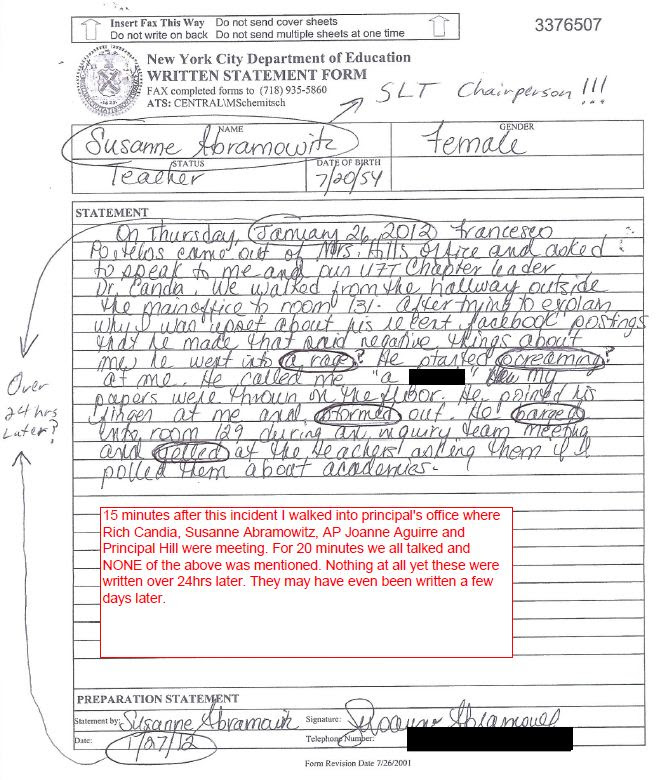 Insert Fax This Way Do not send cover sheets
Do not write on back Do not send multiple sheets at one time
3376507
New York City Department of Education
WRITTEN STATEMENT FORM
FAX completed forms to (718) 935-5860
ATS: CENTRAL\MSchemitsch
SLT Chairperson!!!
NAME
Susanne Abramowitz
GENDER
Female
STATUS
Teacher
DATE OF BIRTH
7/20/54
STATEMENT
On Thursday, January 26, 2012 Francesco
Portelos came out of Mrs. Hills office and asked
to speak to me and our UFT Chapter leader
Dr. Candia. We walked from the hallway outside
the main office to room 131. After trying to explain
why I was upset about his recent facebook postings
that he made that said negative things about
me, he went into a rage? He started screaming?
at me. He called me "a " my
papers were thrown on the floor. He pointed his
finger at me and stormed out. He barged
into room 129 during an inquiry team meeting
and yelled at the teachers asking them if I
polled them about academies.
Over
24 hrs
Later?
15 minutes after this incident I walked into principal's office where
Rich Candia, Susanne Abramowitz, AP Joanne Aguirre and
Principal Hill were meeting. For 20 minutes we all talked and
NONE of the above was mentioned. Nothing at all yet these were
written over 24hrs later. They may have even been written a few
days later.
PREPARATION STATEMENT
Statement by: Susanne Abramowitz Signature: Susanne Abramowitz
Date: 1/27/12 Telephone Number:
Form Revision Date 7/26/2001